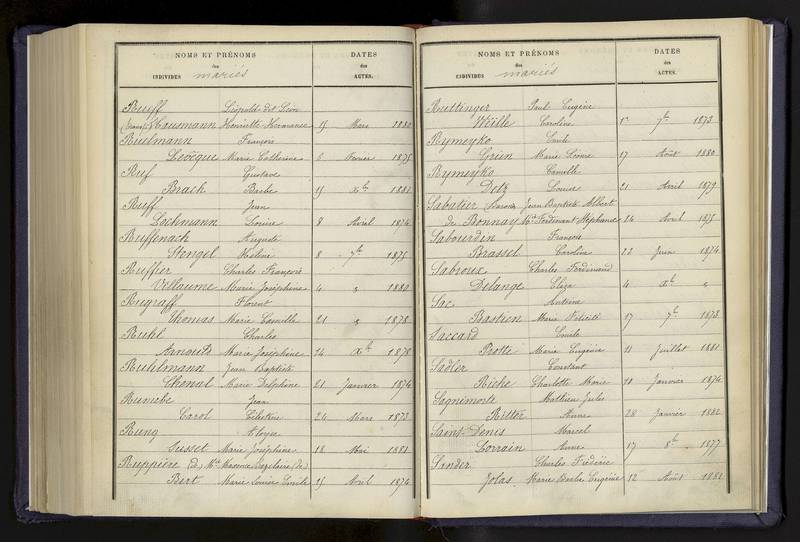 NOMS ET PRÉNOMS
des
INDIVIDUS mariés
DATES
des
ACTES.
Rueff Léopold dit Léon
Hausmann Henriette Hermance 15 Mars 1880
Ruelmann François
Levêque Marie Catherine 6 Février 1875
Ruf Gustave
Brach Barbe 15 Xbre 1881
Ruff Jean
Lochmann Louise 8 Avril 1874
Ruffenach Auguste
Stengel Hélène 8 7bre 1875
Ruffier Charles François
Villaume Marie Joséphine 4 " 1880
Rugraff Florent
Thomas Marie Camille 21 " 1878
Ruhl Charles
Arnould Marie Joséphine 14 Xbre 1878
Ruhlmann Jean Baptiste
Chonal Marie Delphine 21 Janvier 1874
Jean
Carol Célestine 24 Mars 1873
Rung Aloyse
Susset Marie Joséphine 18 Mai 1881
Ruppière (de)
Bert Marie Louise Emilie 15 Avril 1874
NOMS ET PRÉNOMS
des
INDIVIDUS mariés
DATES
des
ACTES.
Ruttinger Paul Eugène
Weille Caroline 1er 7bre 1873
Rymeyko Emile
Grun Marie Léonie 17 Août 1880
Rymeyko Camille
Detz Louise 21 Avril 1879
Sabatier Jean Baptiste Albert
de Bonnay Mie Ferdinant Stéphanie 24 Avril 1875
Sabourdin François
Brasset Caroline 22 Juin 1874
Sabroux Charles Ferdinand
Delange Eliza 4 Xbre "
Sac Antoine
Bastien Marie Félicité 17 7bre 1873
Saccard Emile
Protte Marie Eugénie 11 Juillet 1881
Sadler Constant
Riche Charlotte Marie 10 Janvier 1874
Sagnimorte Mathieu Jules
Ritter Anne 28 Janvier 1882
Saint-Denis Marcel
Lorrain Anne 17 8bre 1877
Sander Charles Frédéric
Jolas Marie Barbe Eugénie 12 Août 1881